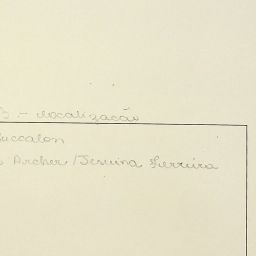 3 - localização
Buccalon
Archer / Jesuina Ferreira